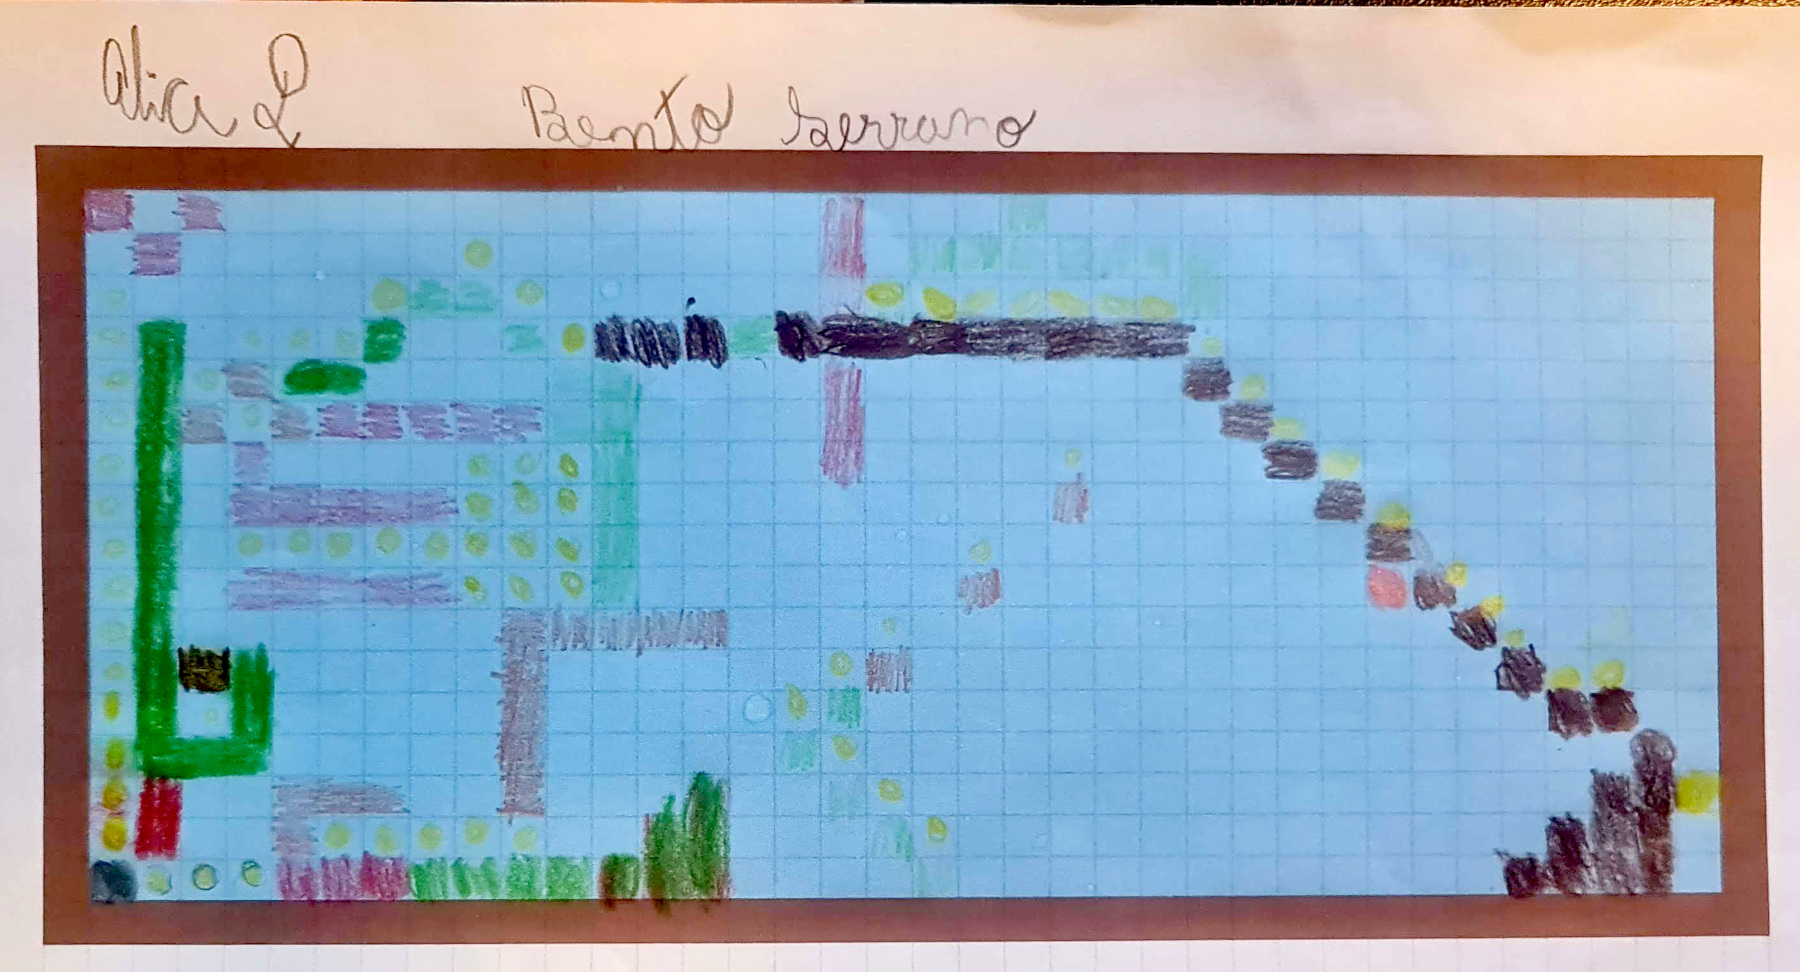 Alice L Bento Serrano